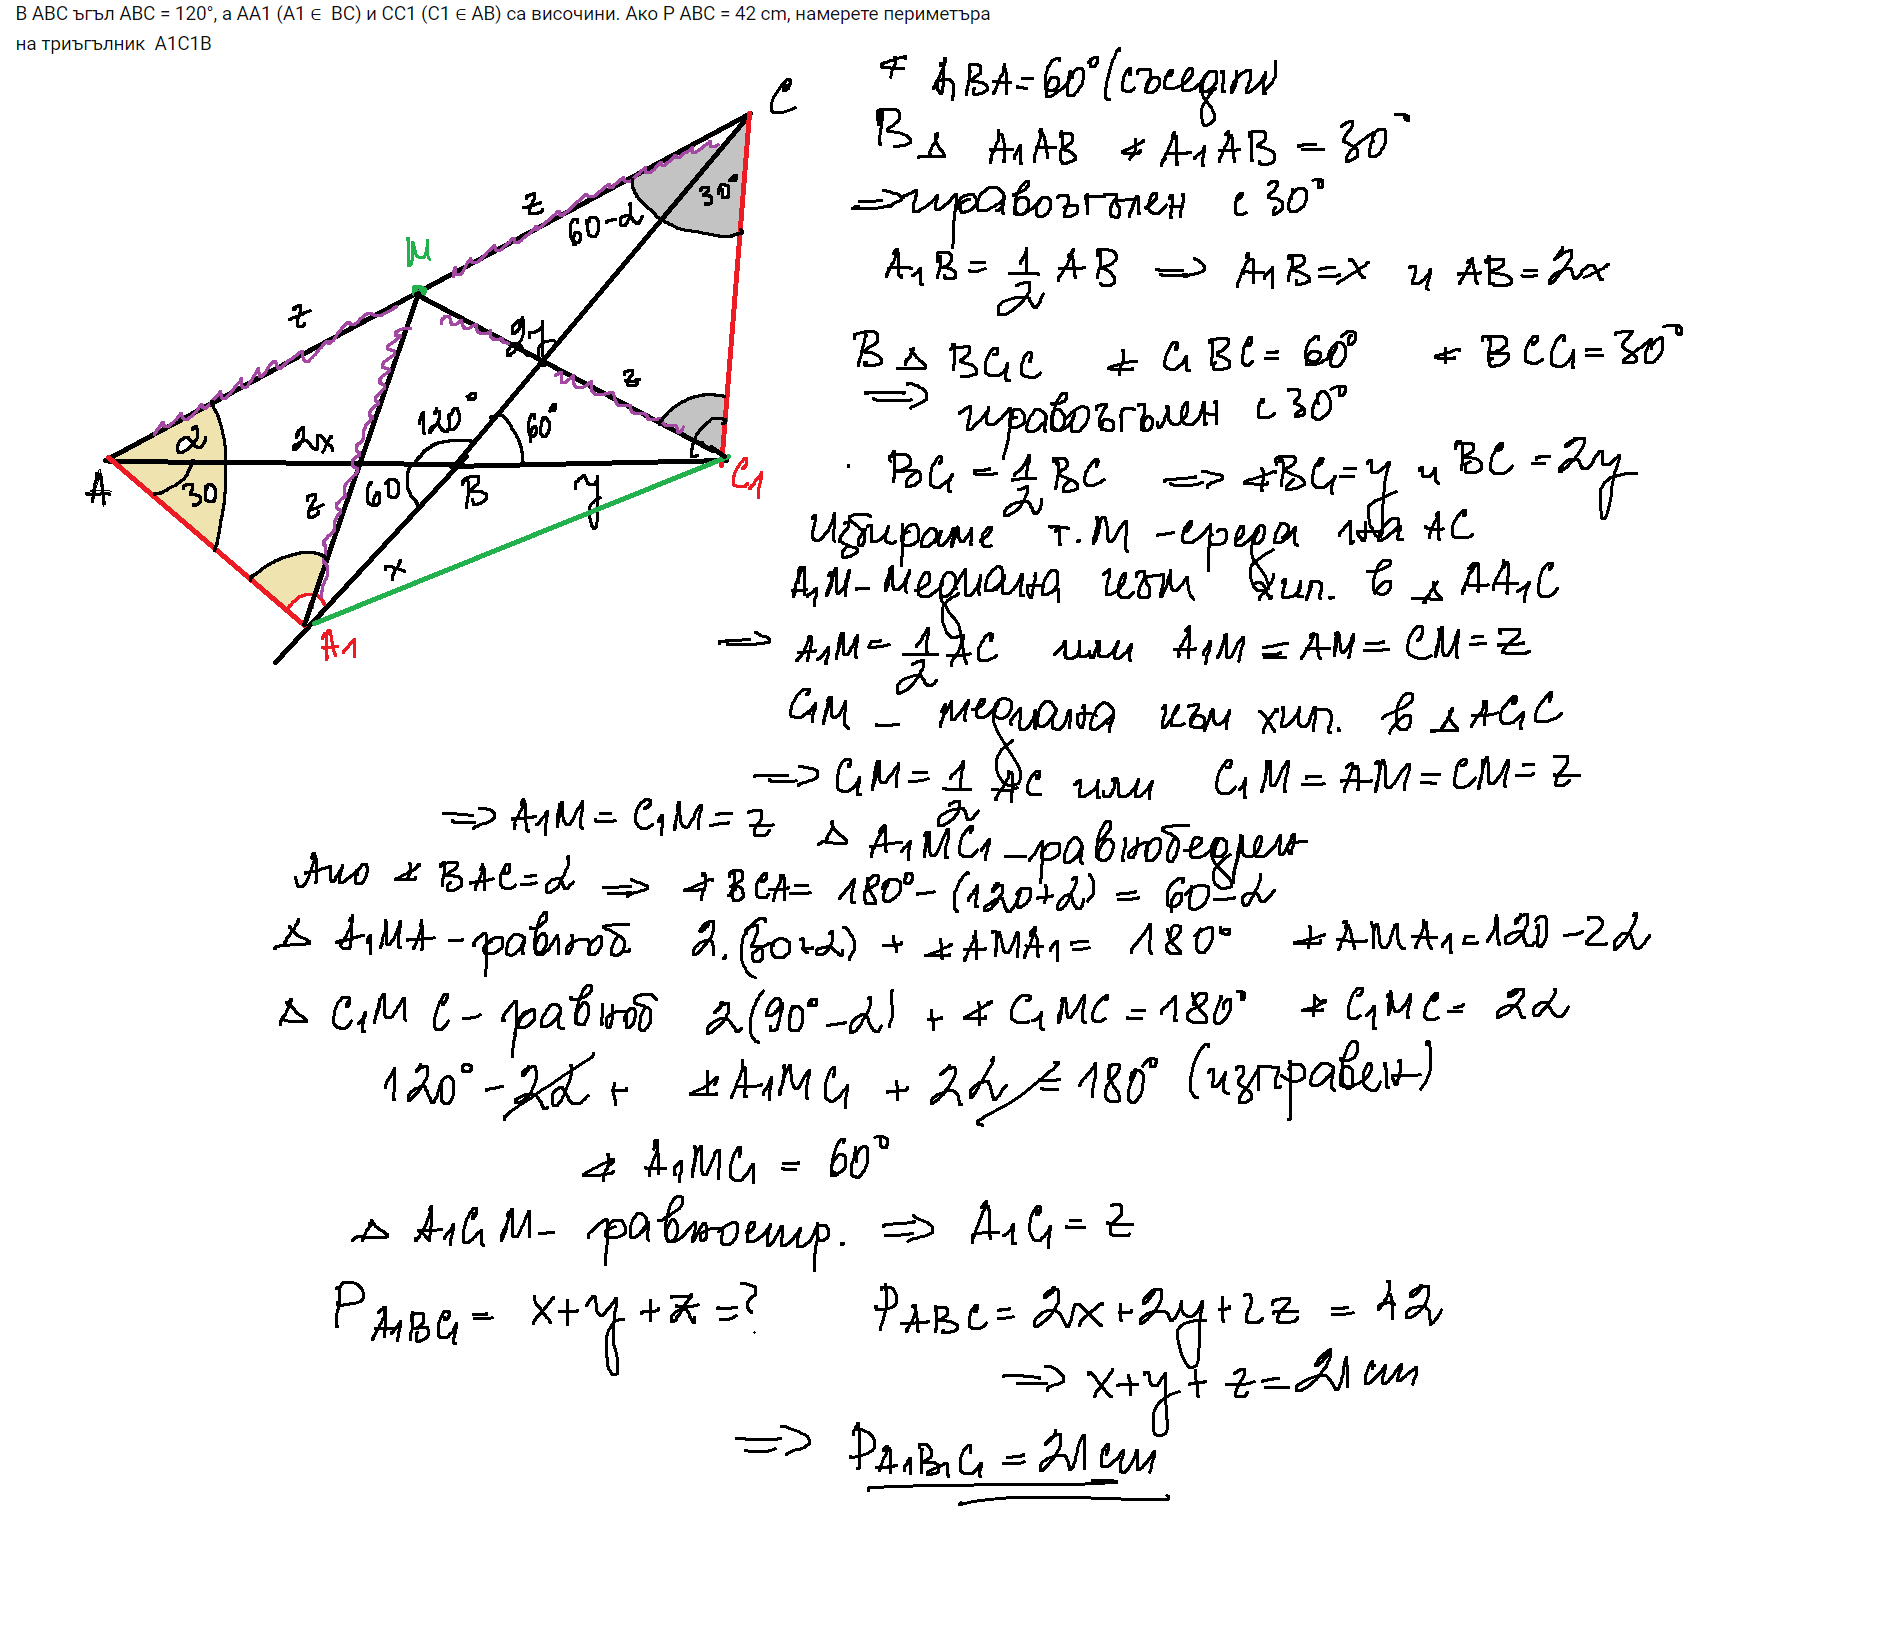 В ABC ъгъл ABC = 120°, а AA1 (A1 ∈ BC) и CC1 (C1 ∈ AB) са височини. Ако P ABC = 42 cm, намерете периметъра
на триъгълник A1C1B
C
30°
60-α
z
M
z
2y
z
120°
60°
α
2x
A
30
z
60
B
y
C1
x
A1
∢ A1BA=60° (съседни
В △ A1AB ∢ A1AB = 30°
=> правоъгълен с 30°
A1B = 1/2 AB => A1B=x и AB=2x
В △ BC1C ∢ C1BC = 60° ∢ BCC1=30°
=> правоъгълен с 30°
BC1 = 1/2 BC => ∢BC1=y и BC=2y
Избираме т.M - среда на AC
A1M - медиана към хип. в △ AA1C
=> A1M = 1/2 AC или A1M = AM = CM = z
C1M - медиана към хип. в △ AC1C
=> C1M = 1/2 AC или C1M = AM = CM = z
=> A1M = C1M = z △ A1MC1 - равнобедрен
Ако ∢ BAC=α => ∢ BCA= 180° - (120+α) = 60-α
△ A1MA - равноб 2.(30+α) + ∢AMA1 = 180° ∢AMA1=120-2α
△ C1MC - равноб 2(90°-α) + ∢ C1MC = 180° ∢ C1MC = 2α
120° - 2α + ∢A1MC1 + 2α = 180° (изправен)
∢ A1MC1 = 60°
△ A1C1M - равностр. => A1C1 = z
P A1BC1 = x+y+z =? P ABC = 2x+2y+2z = 42
=> x+y+z=21cm
=> P A1B1C1 = 21cm